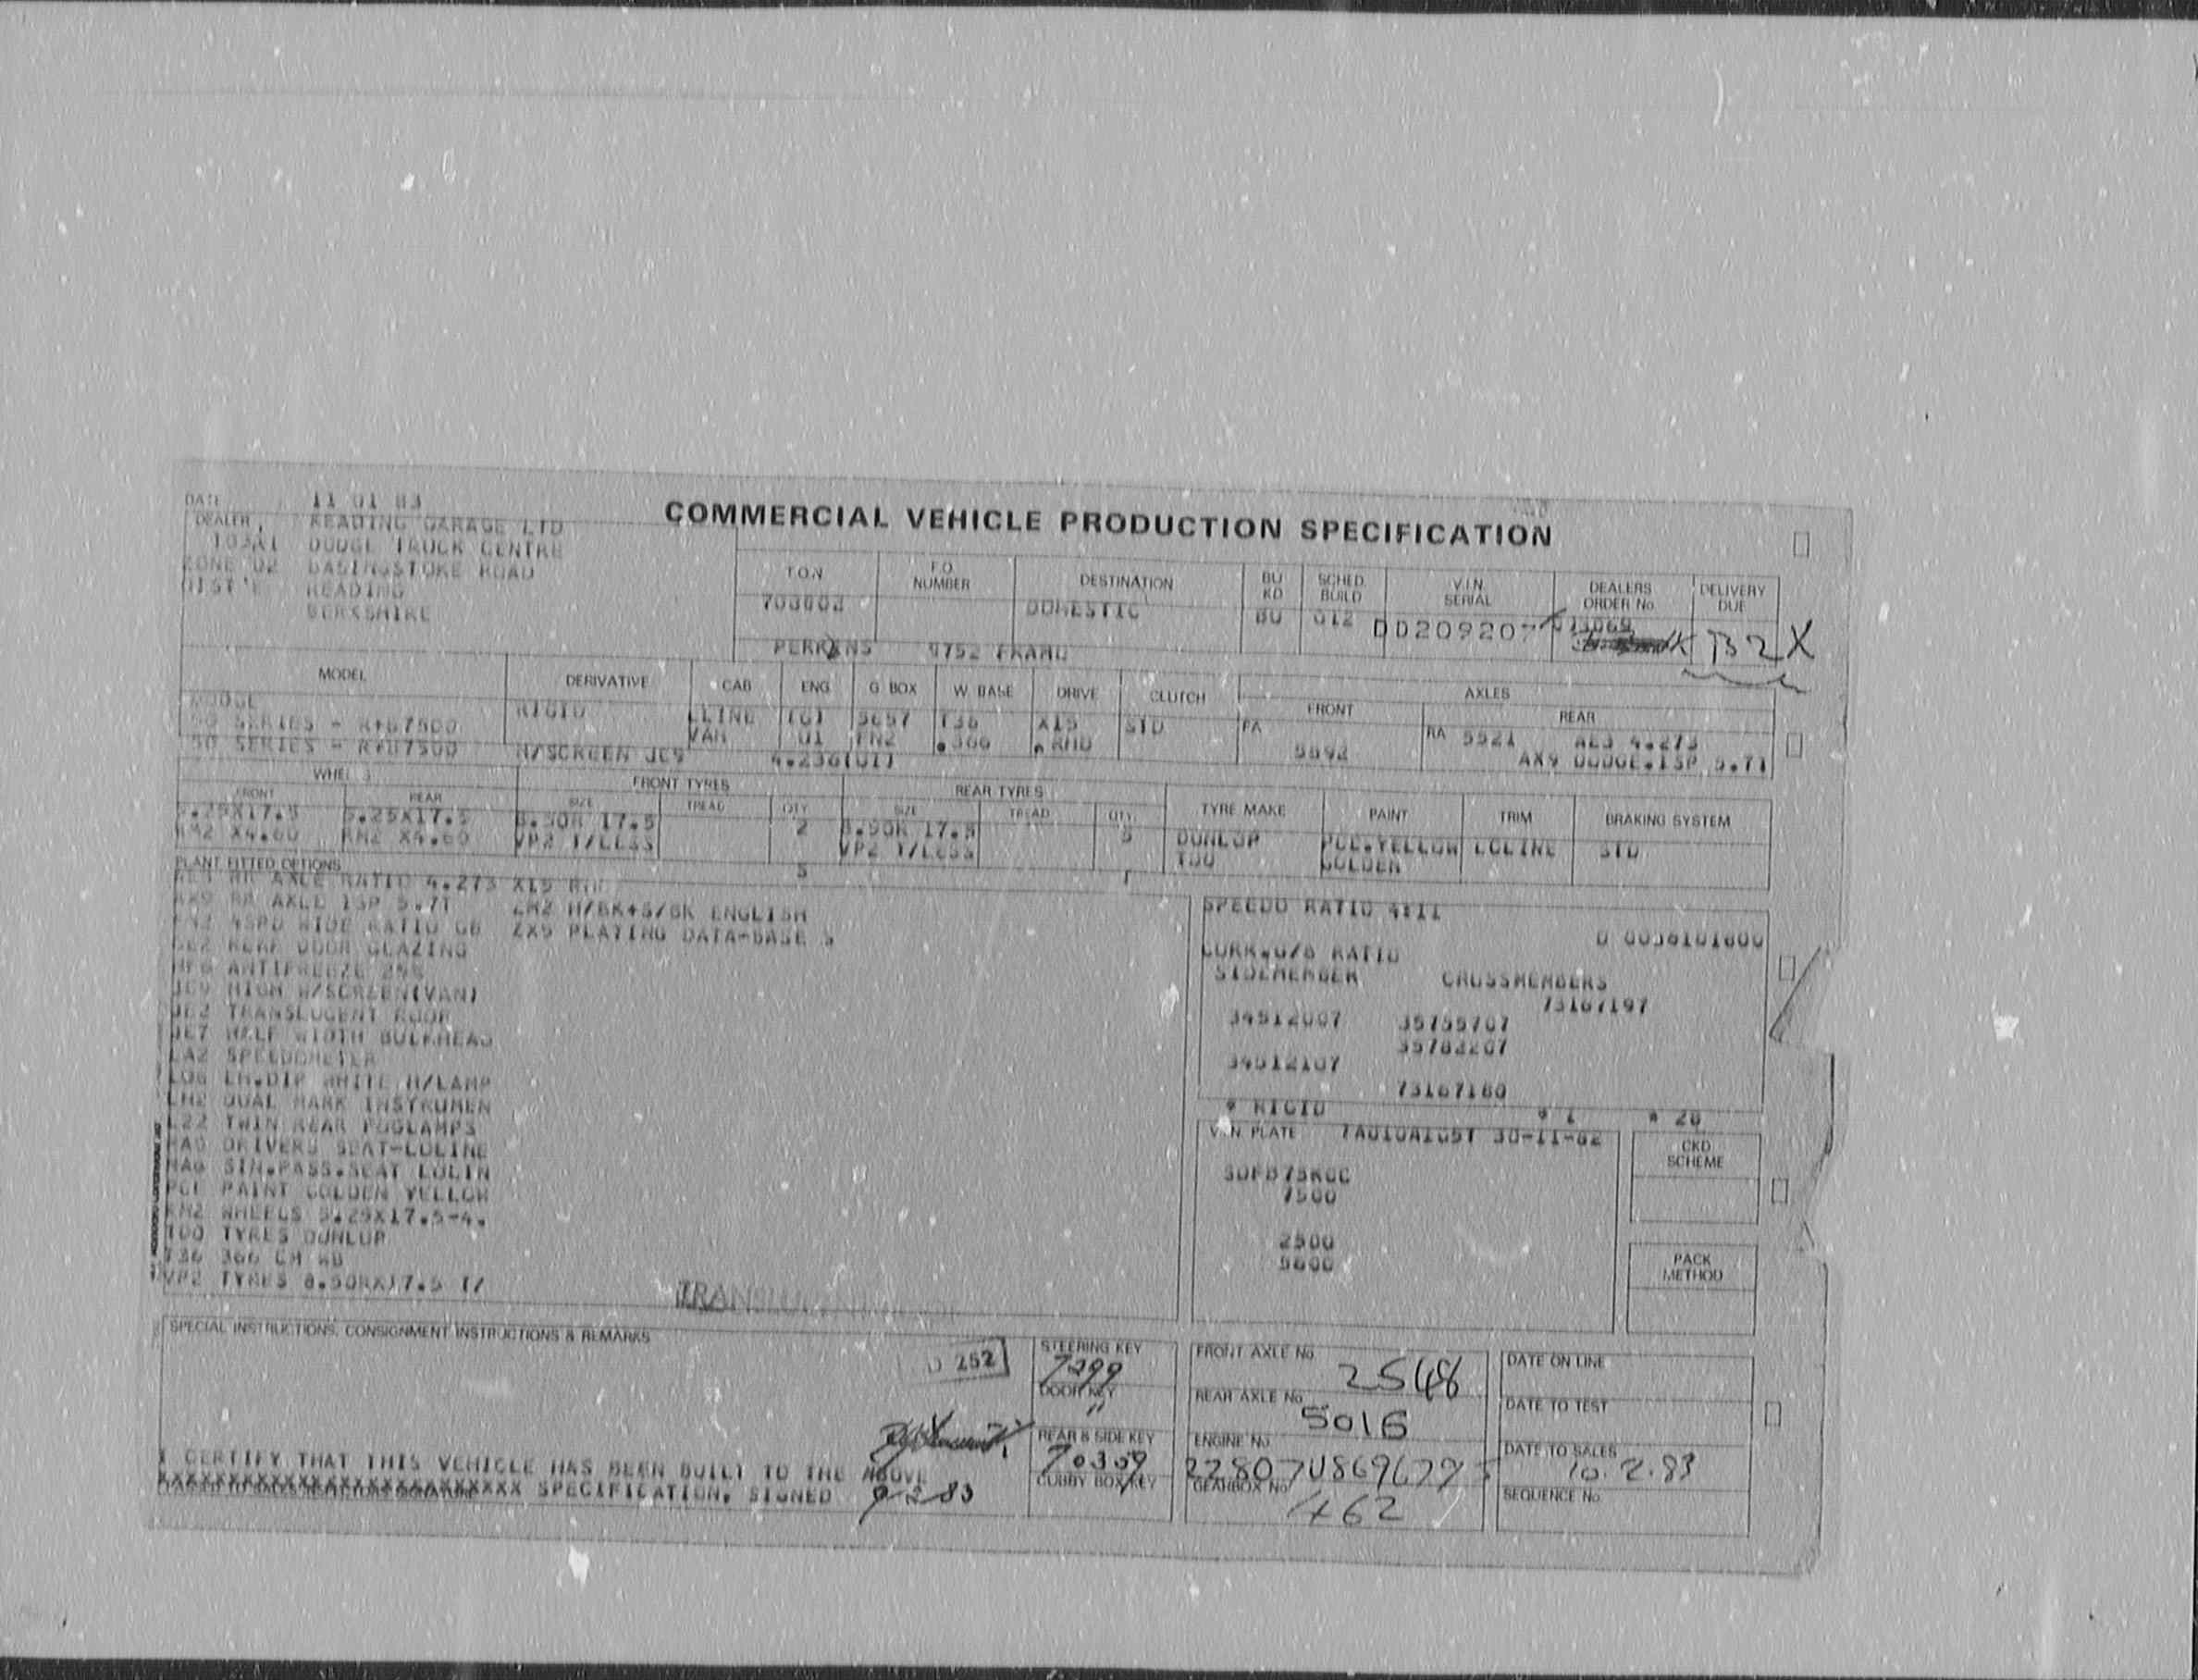 DATE 11 01 83
DEALER, READING GARAGE LTD
DODGE TRUCK CENTRE
ZONE 02 BASINGSTOKE ROAD
DIST'E READING
BERKSHIRE
COMMERCIAL VEHICLE PRODUCTION SPECIFICATION
T.O.N F.O. NUMBER DESTINATION BU KD SCHED. BUILD V.I.N. SERIAL DEALERS ORDER No DELIVERY DUE
DOMESTIC BU 012 DD209207 B2X
PERKINS 9752 FRAMD
MODEL DERIVATIVE CAB ENG G BOX W. BASE DRIVE CLUTCH AXLES
FRONT REAR
DODGE RIGID LLINE T36 X15 STD FA RA 5521 AE3 4.273
50 SERIES - VAN 01 FN2 .366 RHD 5692 AX9 DODGE.1SP 5.71
50 SERIES - H/SCREEN JC9 4.236(01)
WHEELS FRONT TYRES REAR TYRES
FRONT REAR SIZE TREAD QTY SIZE TREAD QTY. TYRE MAKE PAINT TRIM BRAKING SYSTEM
5.25X17.5 5.25X17.5 8.50R 17.5 2 8.50R 17.5 5 DUNLOP PCE.YELLOW LOLINE STD
RM2 X4.60 RM2 X4.60 VP2 T/LESS VP2 T/LESS TDO GOLDEN
PLANT FITTED OPTIONS 5
AE3 RR AXLE RATIO 4.273 X15 RHD
AX9 RR AXLE 1SP 5.71 ZM2 H/BK+S/BK ENGLISH
FN2 4SPD WIDE RATIO GB ZX5 PLATING DATA-BASE 5
GE2 REAR DOOR GLAZING
HF6 ANTIFREEZE 25%
JC9 HIGH W/SCREEN(VAN)
JE2 TRANSLUCENT ROOF
JE7 HALF WIDTH BULKHEAD
LA2 SPEEDOMETER
LD6 LH.DIP WHITE H/LAMP
LH2 DUAL MARK INSTRUMEN
LZ2 TWIN REAR FOGLAMPS
NA5 DRIVERS SEAT-LOLINE
NA6 SIN.PASS.SEAT LOLIN
PCE PAINT GOLDEN YELLOW
RM2 WHEELS 5.25X17.5-4.
TDO TYRES DUNLOP
T36 366 CM WB
VP2 TYRES 8.50RX17.5 T/
TRANSLUCENT
SPEEDO RATIO 4:11
D 0036101600
CORR.G/B RATIO
SIDEMEMBER CROSSMEMBERS
73167197
34512007 35755707
35782207
34512107
73167160
* RIGID * 1 * 28
V.I.N. PLATE 30-11-82
7500
2500
5600
CKD SCHEME
PACK METHOD
SPECIAL INSTRUCTIONS, CONSIGNMENT INSTRUCTIONS & REMARKS
D 252
STEERING KEY
7299
DOOR KEY
"
REAR & SIDE KEY
70359
CUBBY BOX KEY
FRONT AXLE No. 2548
REAR AXLE No. 5016
ENGINE No.
GEARBOX No. 462
DATE ON LINE
DATE TO TEST
DATE TO SALES
10.2.83
SEQUENCE No.
I CERTIFY THAT THIS VEHICLE HAS BEEN BUILT TO THE ABOVE
XXXXXXXXXXXXXXXXXXXXXXXXXX SPECIFICATION, SIGNED 9-2-83